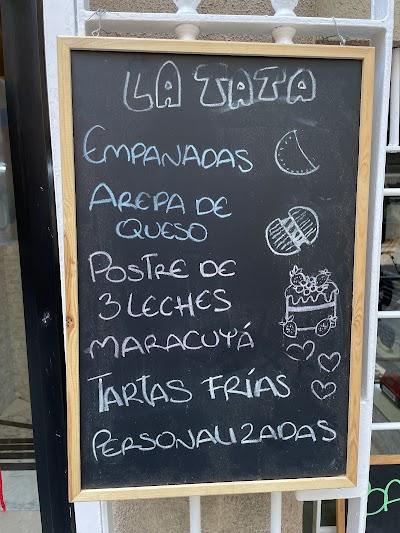 LA TATA
EMPANADAS
AREPA DE
QUESO
POSTRE DE
3 LECHES
MARACUYÁ
TARTAS FRÍAS
PERSONALIZADAS